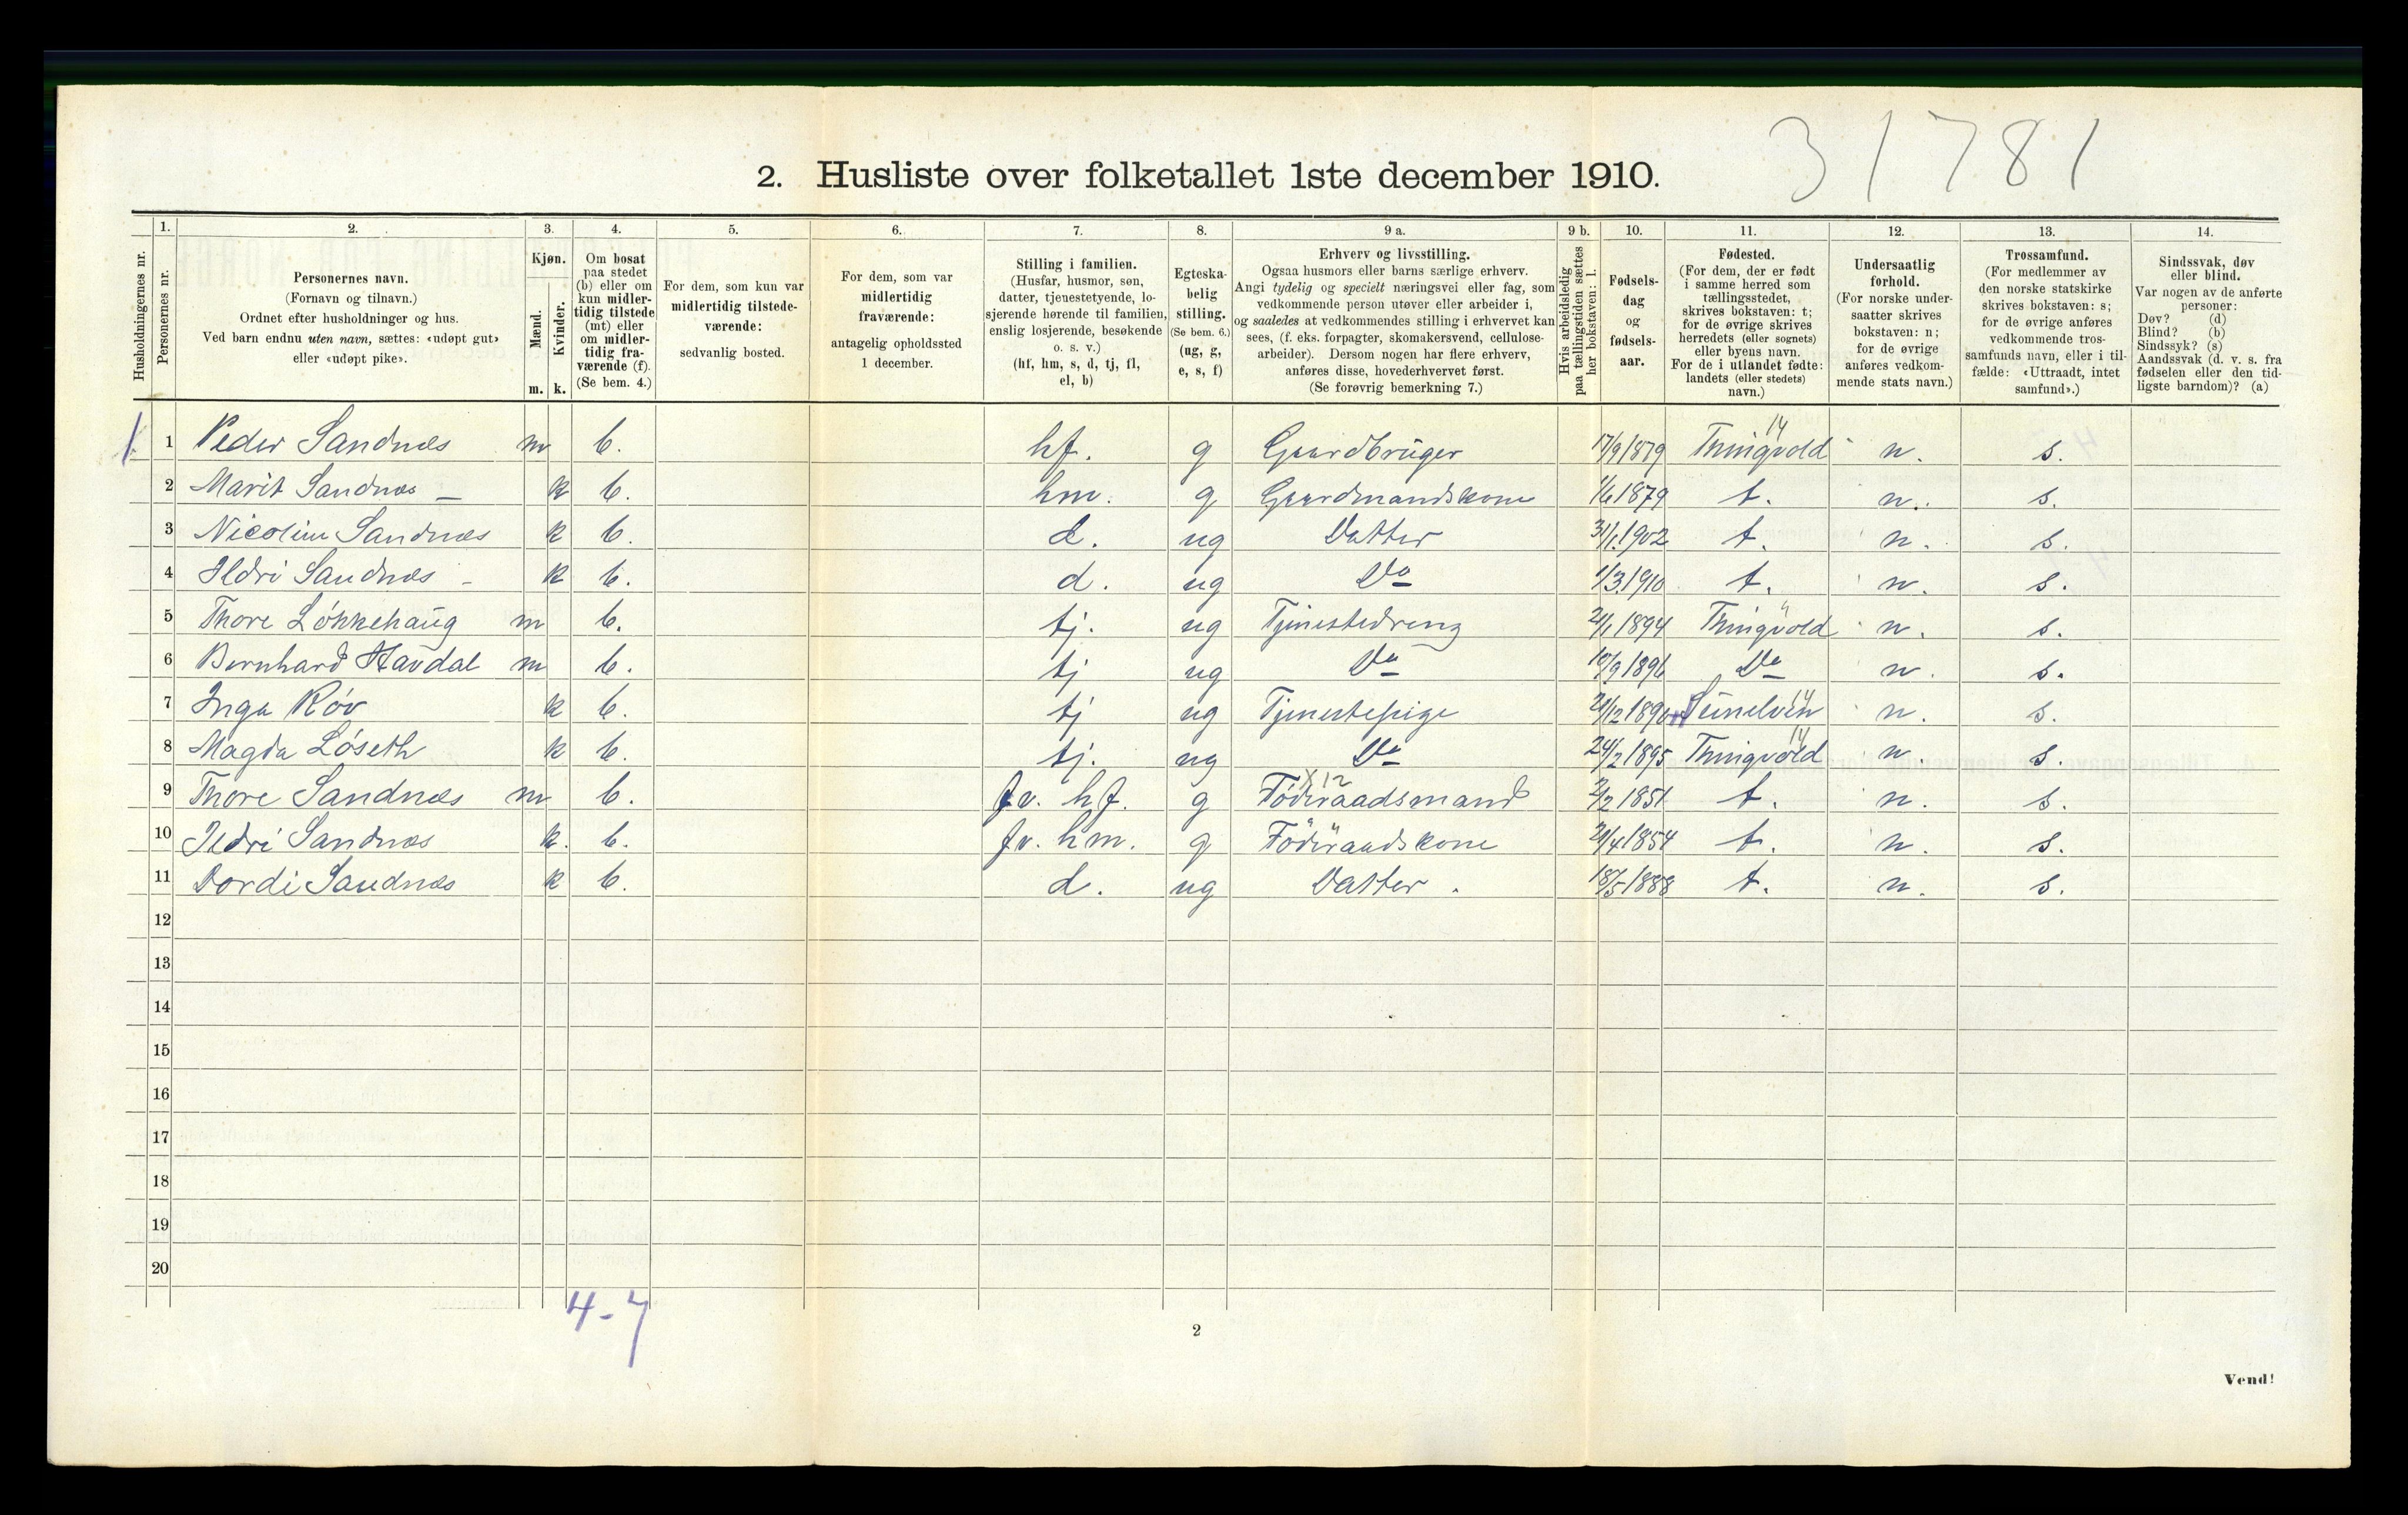 31781
2. Husliste over folketallet 1ste december 1910.
Husholdningernes nr.
1. Personernes nr.
2. Personernes navn.
(Fornavn og tilnavn.)
Ordnet efter husholdninger og hus.
Ved barn endnu uten navn, sættes: «udøpt gut»
eller «udøpt pike».
3. Kjøn.
Mænd. m.
Kvinder. k.
4. Om bosat
paa stedet
(b) eller om
kun midler-
tidig tilstede
(mt) eller
om midler-
tidig fra-
værende (f).
(Se bem. 4.)
5. For dem, som kun var
midlertidig tilstede-
værende:
sedvanlig bosted.
6. For dem, som var
midlertidig
fraværende:
antagelig opholdssted
1 december.
7. Stilling i familien.
(Husfar, husmor, søn,
datter, tjenestetyende, lo-
sjerende hørende til familien,
enslig losjerende, besøkende
o. s. v.)
(hf, hm, s, d, tj, fl,
el, b)
8. Egteska-
belig
stilling.
(Se bem. 6.)
(ug, g,
e, s, f)
9 a. Erhverv og livsstilling.
Ogsaa husmors eller barns særlige erhverv.
Angi tydelig og specielt næringsvei eller fag, som
vedkommende person utøver eller arbeider i,
og saaledes at vedkommendes stilling i erhvervet kan
sees, (f. eks. forpagter, skomakersvend, cellulose-
arbeider). Dersom nogen har flere erhverv,
anføres disse, hovederhvervet først.
(Se forøvrig bemerkning 7.)
9 b. Hvis arbeidsledig
paa tællingstiden sættes
her bokstaven: l.
10. Fødsels-
dag
og
fødsels-
aar.
11. Fødested.
(For dem, der er født
i samme herred som
tællingsstedet,
skrives bokstaven: t;
for de øvrige skrives
herredets (eller sognets)
eller byens navn.
For de i utlandet fødte:
landets (eller stedets)
navn.)
12. Undersaatlig
forhold.
(For norske under-
saatter skrives
bokstaven: n;
for de øvrige
anføres vedkom-
mende stats navn.)
13. Trossamfund.
(For medlemmer av
den norske statskirke
skrives bokstaven: s;
for de øvrige anføres
vedkommende tros-
samfunds navn, eller i til-
fælde: «Uttraadt, intet
samfund».)
14. Sindssvak, døv
eller blind.
Var nogen av de anførte
personer:
Døv? (d)
Blind? (b)
Sindssyk? (s)
Aandssvak (d. v. s. fra
fødselen eller den tid-
ligste barndom)? (a)
1. 1 Peder Sandnæs m b. hf. g Gaardbruger 17/9 1879 Thingvold 14 n. s.
2 Marit Sandnæs — k b. hm. g Gaardmandskone 1/6 1879 t. n. s.
3 Nicoline Sandnæs k b. d. ug Datter 31/1 1902 t. n. s.
4 Ildri Sandnæs - k b. d. ug Do 1/3 1910 t. n. s.
5 Thore Løkkehaug m b. tj. ug Tjenestedreng 1894 Thingvold " n. s.
6 Bernhard Havdal m b. tj ug Do 10/9 1896 Do n. s.
7 Inga Røv k b. tj ug Tjenestepige 14 n. s.
8 Magda Løseth k b. tj. ug Do 24/2 1895 Thingvold 14 n. s.
9 Thore Sandnæs m b. fv. hf. g Føderaadsmand X12 2/2 1851 t. n. s.
10 Ildri Sandnæs k. b. fv. hm. g Føderaadskone 1854 t. n. s.
11 Dordi Sandnæs k b. d. ug Datter. 18/5 1888 t. n. s.
12
13
14
15
16
17
18
19
20
4-7
2
Vend!